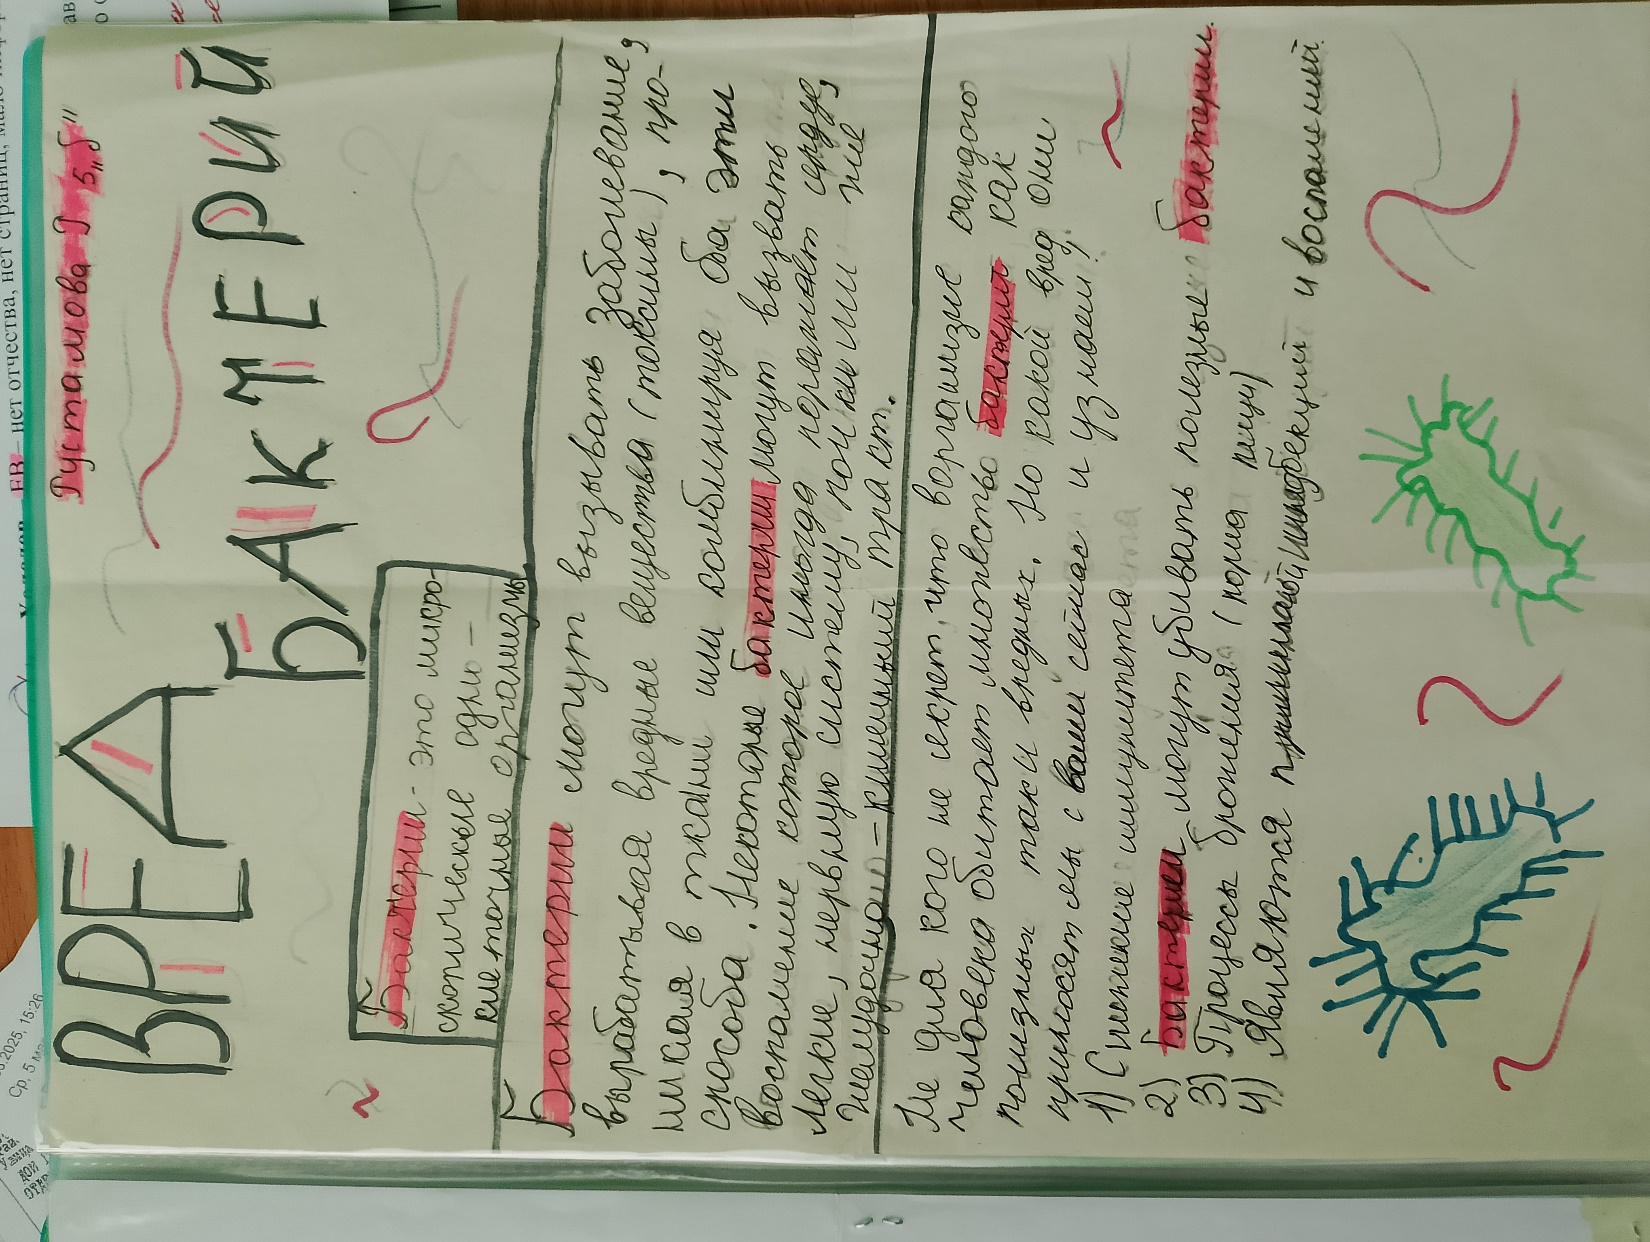 Рустамова Р 5 „б"
ВРЕА
БАКТЕРИЙ
Бактерии - это микро-
скопические одно -
клеточные организмы
Бактерии могут вызывать заболевание,
вырабатывая вредные вещества (токсины), про-
никая в ткани или комбинируя оба эти
способа. Некоторые бактерии могут вызвать
воспаление которое иногда поражает сердце,
лёгкие, нервную систему, почки или же
желудочно - кишечный тракт.
Не для кого не секрет, что ворганизме каждого
человека обитает множество бактерий как
полезных так и вредных. Но какой вред они
приносят мы с вами сейчас и узнаем!
1) Снижение иммунитета
2) Бактерии могут убивать полезные бактерии.
3) Процессы брожения (порча пищи)
4) Являются причиной инфекций и воспалений.
ЕВ – нет отчества, нет страниц, мало
2025, 15:26
Ср, 5